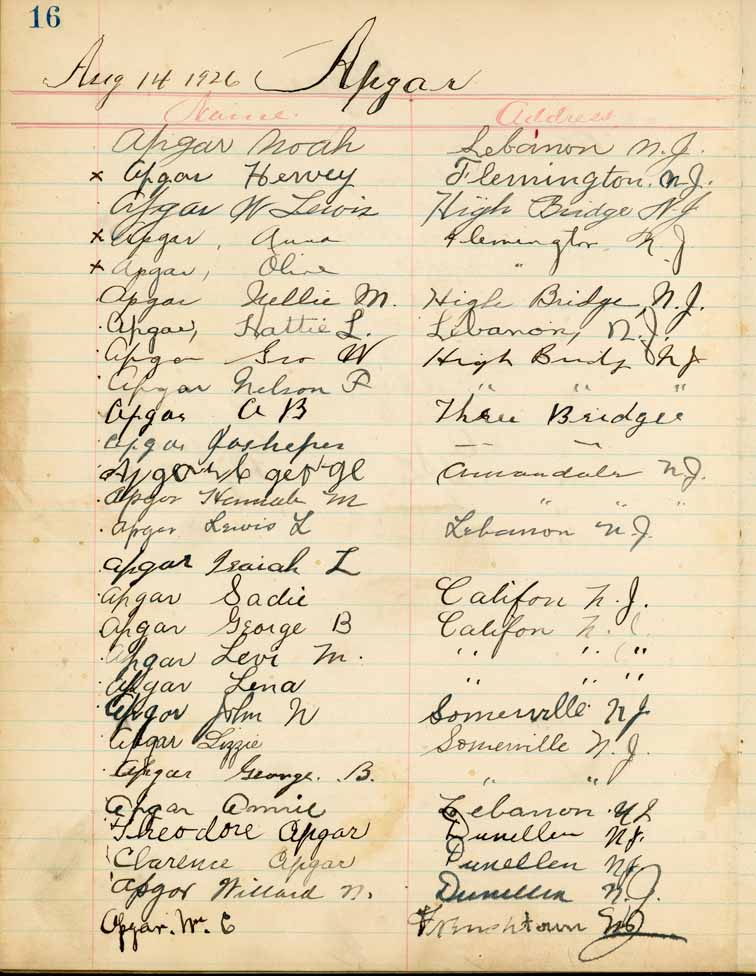 16
Aug 14 1926 Apgar
Name. Address
Apgar Noah Lebanon N.J.
x Apgar Hervey Flemington. N.J.
Apgar W Lewis High Bridge NJ
x Apgar, Anna Flemington N.J
x Apgar, Olive "
Apgar Nellie M. High Bridge, N.J.
Apgar, Hattie L. Lebanon, N.J.
Apgar Geo W High Bridg NJ
Apgar Nelson P " " "
Apgar A B Three Bridges
Apgar
Apgar george Annandale N.J.
Apgar Hannah M " " "
Apgar Lewis L Lebanon N.J.
Apgar Isaiah L
Apgar Sadie Califon N.J.
Apgar George B Califon N.
Apgar Levi M. " " "
Apgar Lena " " "
Apgar John N Somerville NJ
Apgar Lizzie Somerville N.J.
Apgar George. B. " "
Apgar Annie Lebanon NJ
Theodore Apgar Dunellen NJ.
Clarence Apgar Dunellen NJ
Apgar Willard N. Dunellen N.J.
Apgar. Wm. C Frenchtown NJ